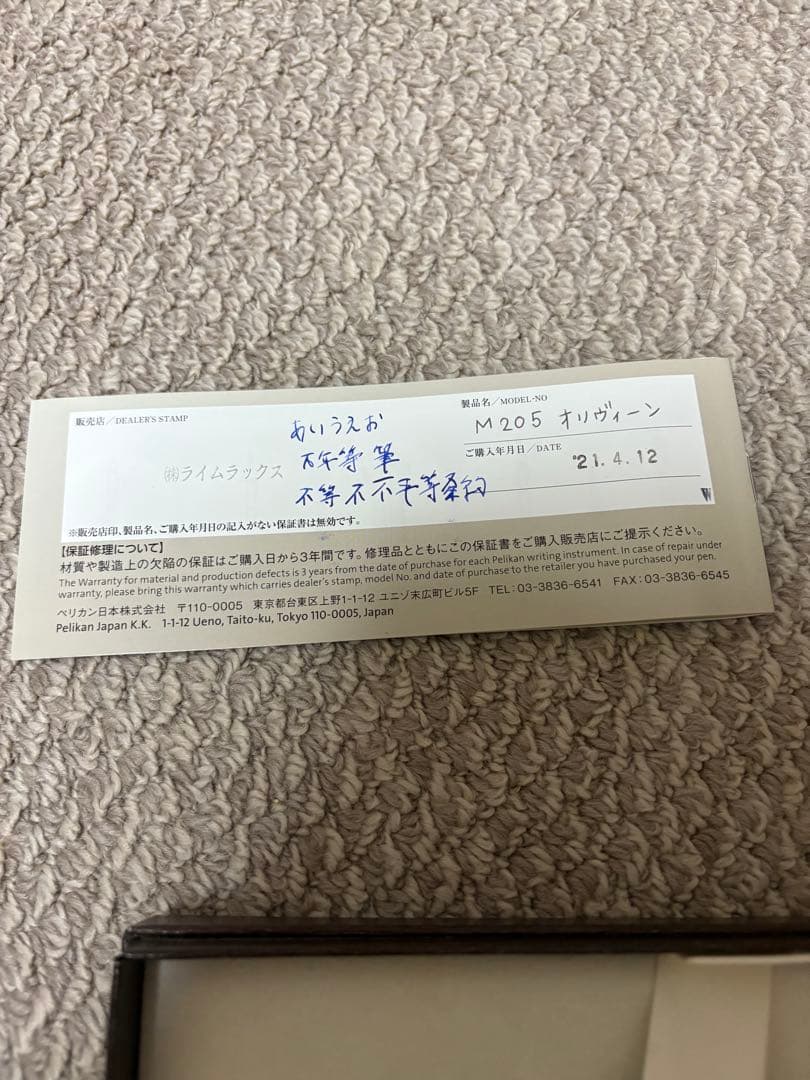 販売店/DEALER'S STAMP
㈱ライムラックス
あいうえお
万年等筆
不等不不平等条約
製品名/MODEL-NO
M205 オリヴィーン
ご購入年月日/DATE
'21.4.12
※販売店印、製品名、ご購入年月日の記入がない保証書は無効です。
W
【保証修理について】
材質や製造上の欠陥の保証はご購入日から3年間です。修理品とともにこの保証書をご購入販売店にご提示ください。
The Warranty for material and production defects is 3 years from the date of purchase for each Pelikan writing instrument. In case of repair under
warranty, please bring this warranty which carries dealer's stamp, model No. and date of purchase to the retailer you have purchased your pen.
ペリカン日本株式会社 〒110-0005 東京都台東区上野1-1-12 ユニゾ末広町ビル5F TEL:03-3836-6541 FAX:03-3836-6545
Pelikan Japan K.K. 1-1-12 Ueno, Taito-ku, Tokyo 110-0005, Japan